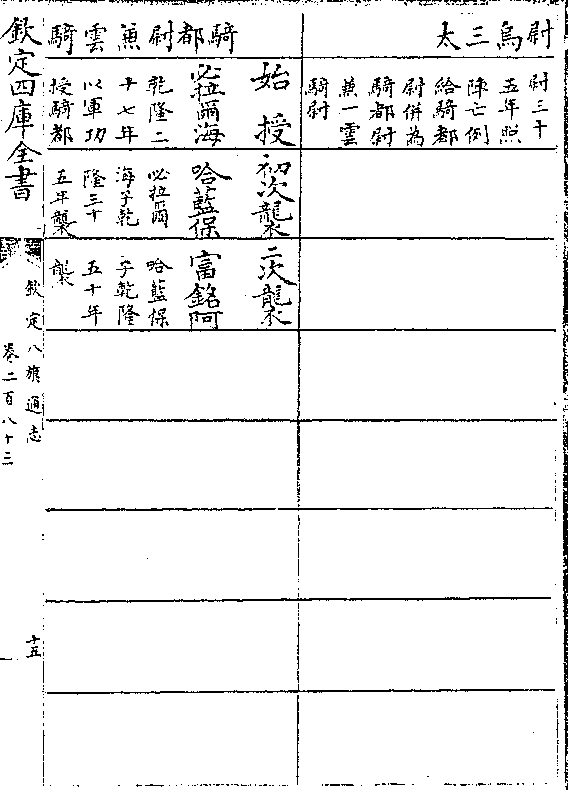 尉烏三太
尉三十
五年照
陣亡例
給騎都
尉併為
騎都尉
兼一雲
騎尉
騎都尉兼雲騎
始授
必拉爾海
乾隆二
十七年
以軍功
授騎都
初次襲
哈藍保
必拉爾
海子乾
隆三十
五年襲
二次襲
富銘阿
哈藍保
子乾隆
五十年
襲
欽定四庫全書
欽定八旗通志
卷二百八十三
十五